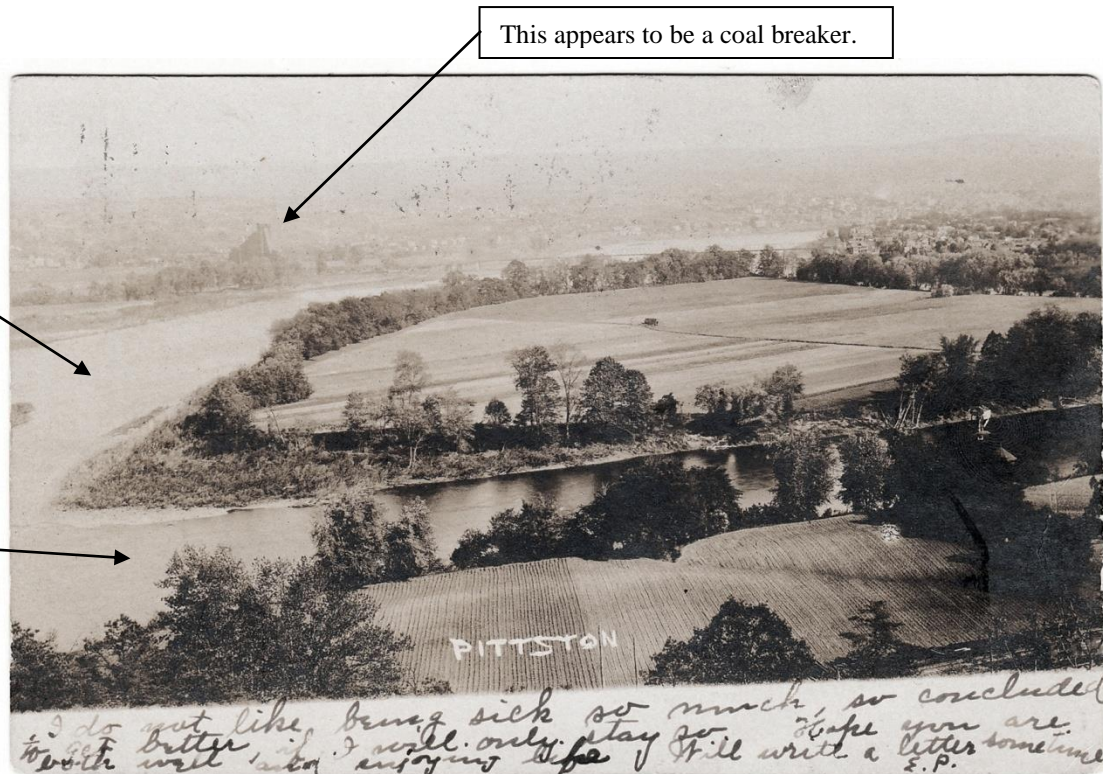 This appears to be a coal breaker.
PITTSTON
I do not like being sick so much, so concluded
to get better, if I will only stay so. Hope you are
both well and enjoying life Will write a letter sometime
E.P.